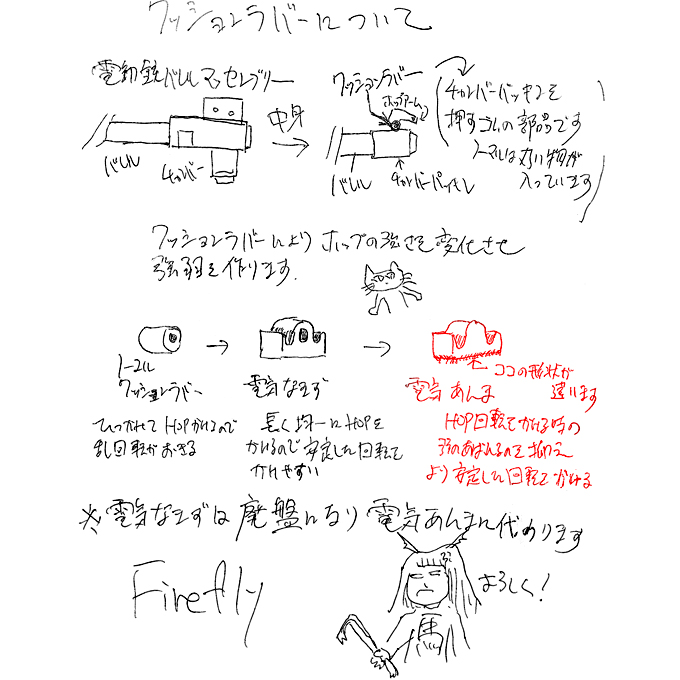 クッションラバーについて
電動銃バレルアッセンブリー
クッションラバー
ホップアーム
中身
バレル
チャンバー
バレル
チャンバーパッキン
チャンバーパッキンを
押すゴムの部品です
ノーマルは丸い物が
入っています
クッションラバーによりホップの強さを変化させ
強弱を作ります.
ノーマル
クッションラバー
電気なまず
電気あんま
ココの形状が
違います
HOPかけるので
乱回転がおきる
長く均一にHOPを
かけるので安定した回転で
かけやすい
HOP回転でかける時の
抑え
より安定した回転でかける
※電気なまずは廃盤になり電気あんまに代わります
Firefly
よろしく!
馬